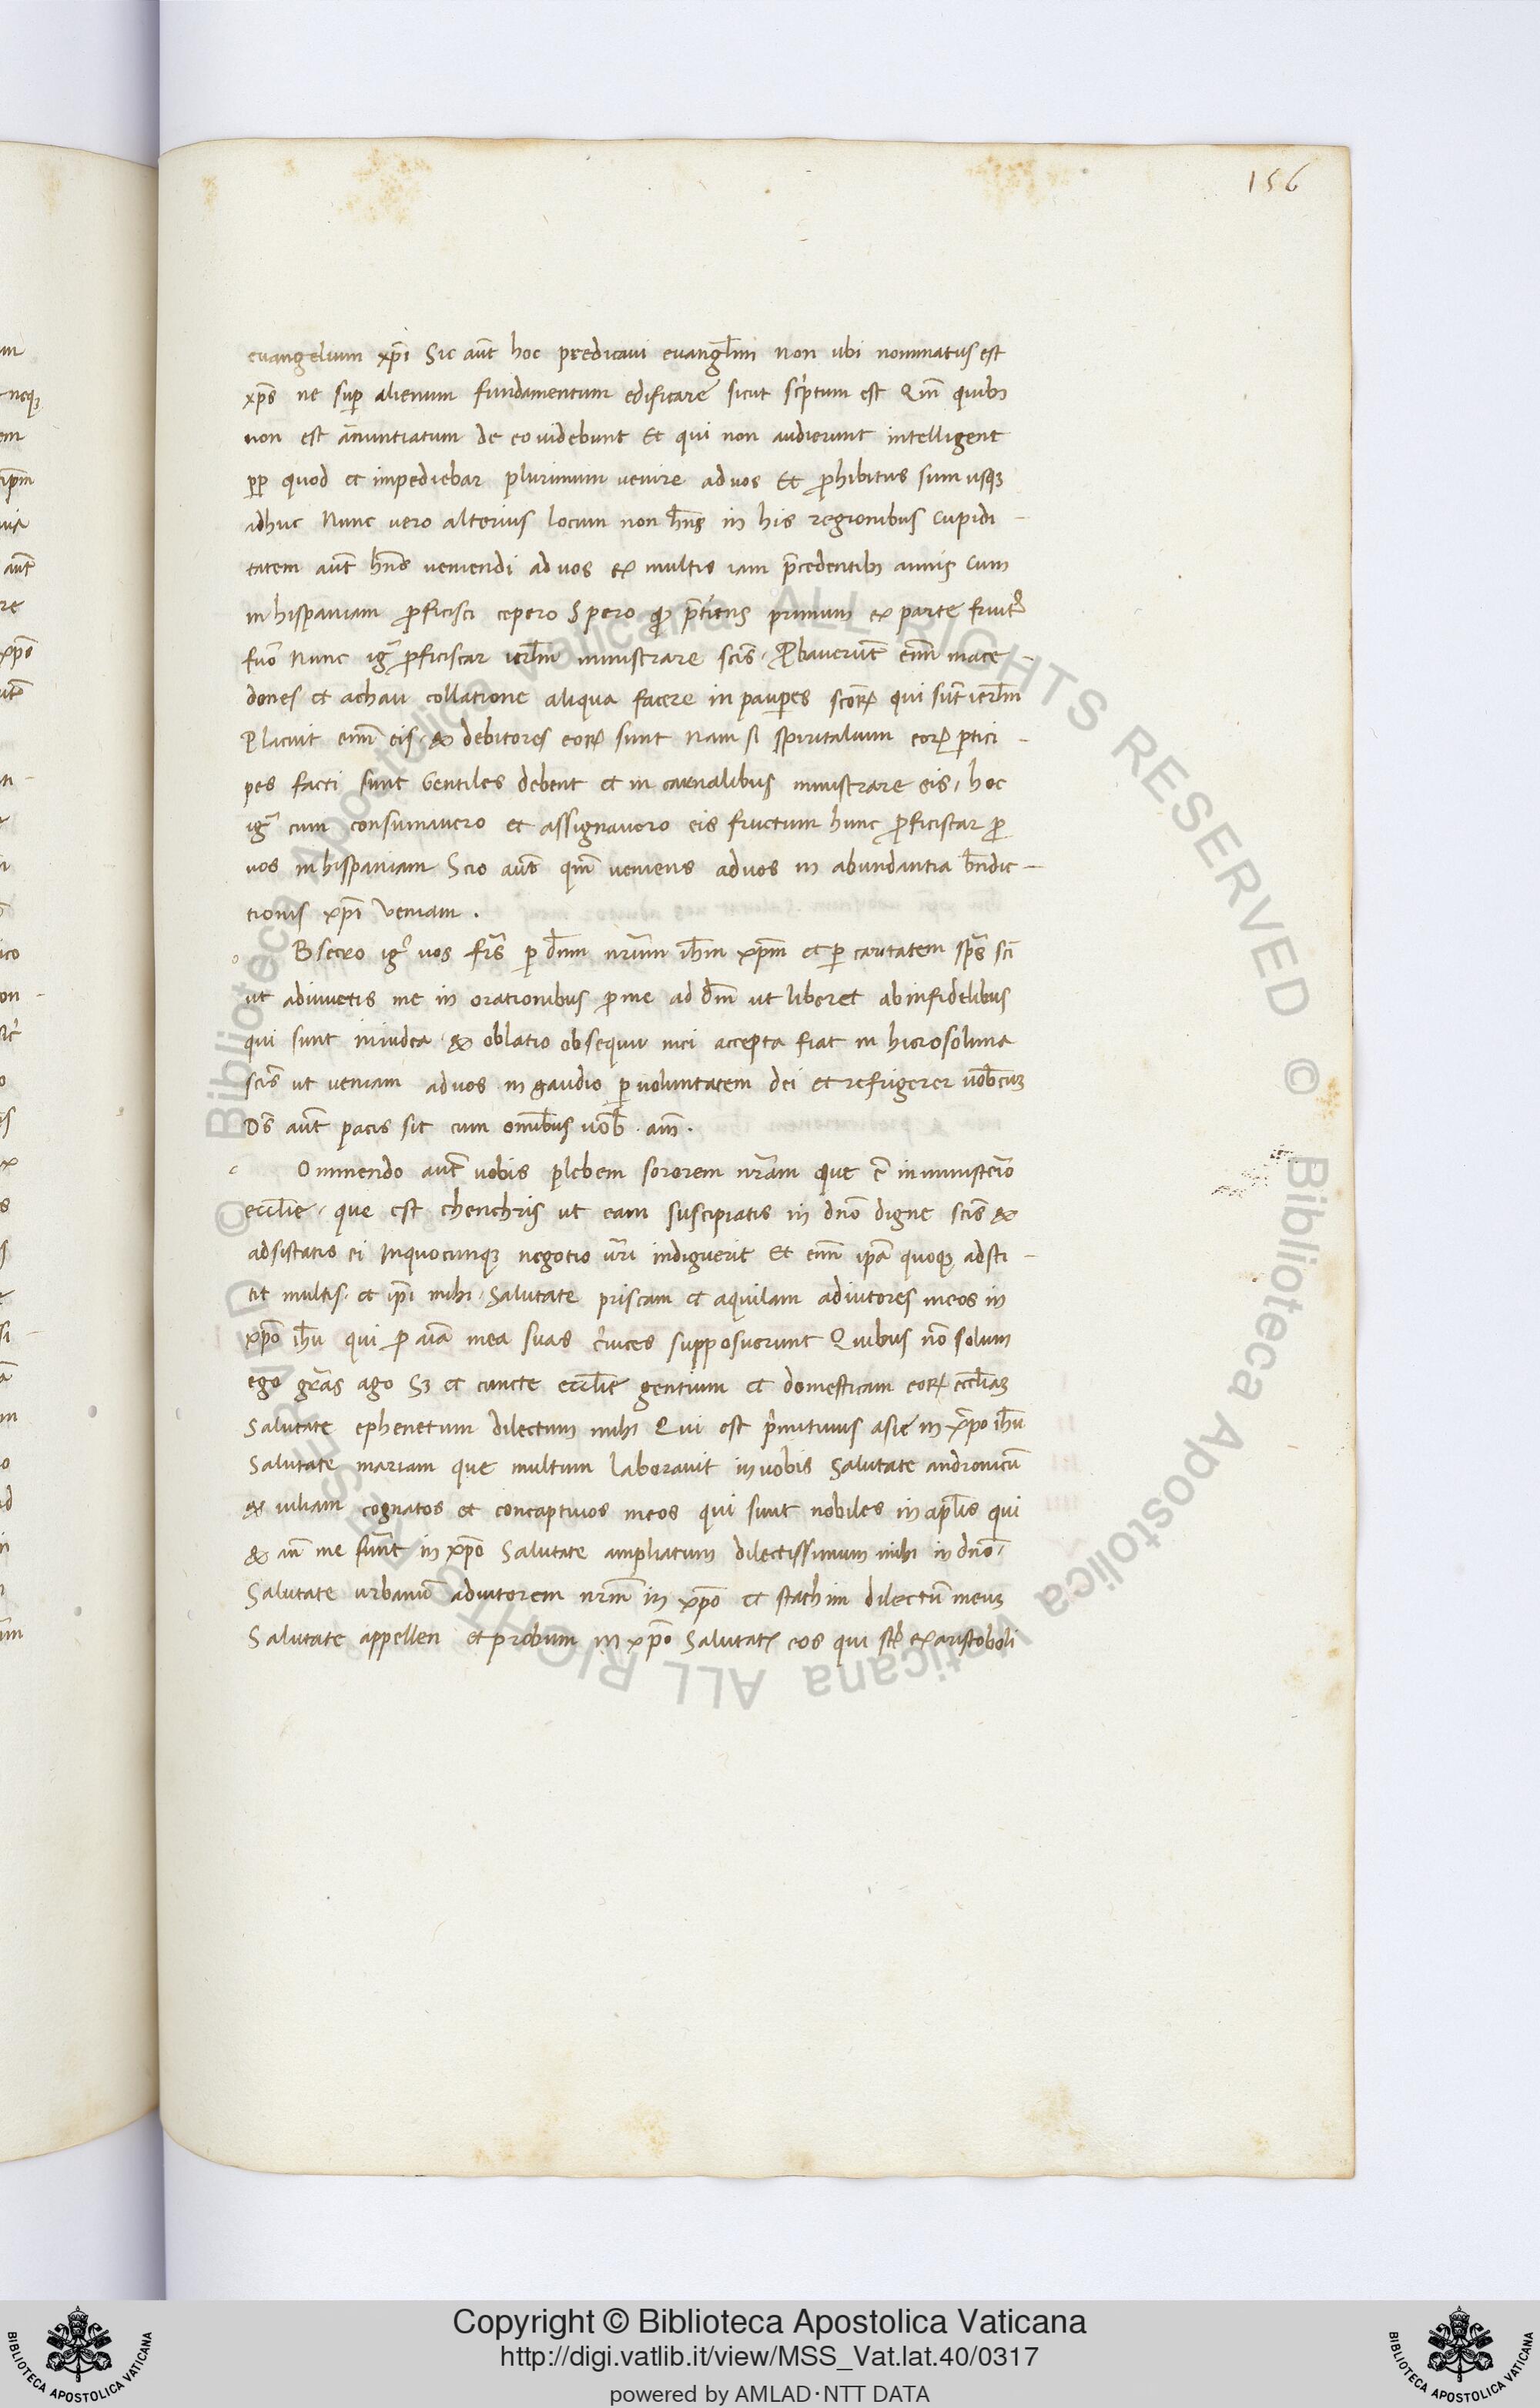 156
evangelium xp̄i Sic aut̄ hoc predicavi evangl̄im non ubi nominatus est
xp̄s ne sup̲ alienum fundamentum edificare sicut scͥptum est Qm̄ quibꝫ
non est ānuntiatum de eo videbunt Et qui non audierunt intelligent
ꝓp quod et impediebar plurimum venire ad vos Et ꝓhibitus sum usqꝫ
adhuc Nunc vero alterius locum non hn̄s in his regionibus cupidi –
tatem aut̄ hn̄s veniendi ad vos ex multis iam p̄cedentibꝫ annis Cum
in hispaniam ꝓficisci cepero Spero qͩ p̄tiens primum ex parte fruitꝰ
fuō Nunc igͬ ꝓficiscar ierl̄m ministrare scīs. Ꝓbaverūt enī mace –
dones et achaii collatione aliqua facere in paupꝑes scōꝝ qui sūt ierl̄m
Placuit enī eis. & debitores eoꝝ sunt Nam si spiritalium eoꝝ ꝑtici –
pes facti sunt Gentiles debent et in carnalibus ministrare eis. hoc
igͬ cum consumavero et assignavero eis fructum hunc ꝓficiscar ꝑ
vos in hispaniam Scio aut̄ qm̄ veniens ad vos in abundantia bn̄dic –
tionis xp̄i veniam.
o Bsecro igͬ vos fr̄s ꝑ dn̄m nr̄um ih̄m xp̄m et ꝑ caritatem sp̄s sc̄i
ut adiuvetis me in orationibus ꝓ me ad dm̄ ut liberet ab infidelibus
qui sunt in iudea & oblatio obsequii mei accepta fiat in hierosolima
scīs ut veniam ad vos in gaudio ꝑ voluntatem dei et refrigerer vob̄cuꝫ
Ds̄ aut̄ pacis sit cum omībus vob̄. am̄.
c Ommendo aut̄ vobis phebem sororem nr̄am que ē in ministerio
eccl̄ie. que est chenchris ut eam suscipiatis in dn̄o digne scīs &
adsistatis ei in quocunqꝫ negotio vr̄i indiguerit Et enī ip̄a quoqꝫ adsti –
tit multis. et ip̄i mihi. Salutate priscam et aquilam adiutores meos in
xp̄o ih̄u qui ꝓ aīa mea suas c̄vices supposuerunt Quibus nō solum
ego gr̄as ago Sꝫ et cuncte eccl̄ie gentium et domesticam eoꝝ eccl̄iaꝫ
Salutate ephenetum dilectum mihi Qui est pͥmitivus asie in xp̄o ih̄u
Salutate mariam que multum laboravit in vobis Salutate andronicū
& iuliam cognatos et concaptivos meos qui sunt nobiles in apl̄is qui
& an̄ me fūnt in xp̄o Salutate ampliatum dilectissimum mihi in dn̄o.
Salutate urbanū adiutorem nr̄m in xp̄o et stachim dilectū meuꝫ
Salutate appellen et probum in xp̄o Salutatꝭ eos qui st̄ ex aristoboli
Copyright © Biblioteca Apostolica Vaticana
http://digi.vatlib.it/view/MSS_Vat.lat.40/0317
powered by AMLAD·NTT DATA